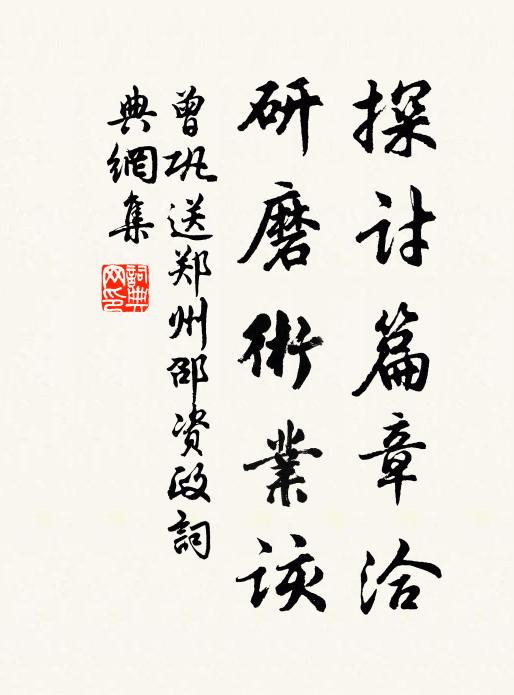 探讨篇章洽
研磨術業該
曾巩送郑州邵资政詞
典網集
詞典网印